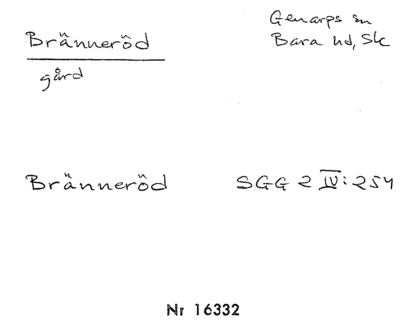 Bränneröd
gård
Genarps sn
Bara hd, Sk
Bränneröd
SGG 2 IV:254
Nr 16332